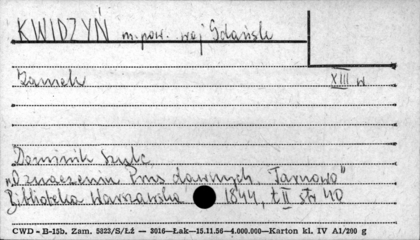 KWIDZYŃ m. pow. woj Gdańsk
Zamek XIII w
Dominik Szulc
"O znaczeniu Prus dawnych, Tarnowo"
Biblioteka Warszawska 1844, t II str 40
CWD - B-15b. Zam. 5323/S/Łź — 3016—Łak—15.11.56—4.000.000—Karton kl. IV A1/200 g